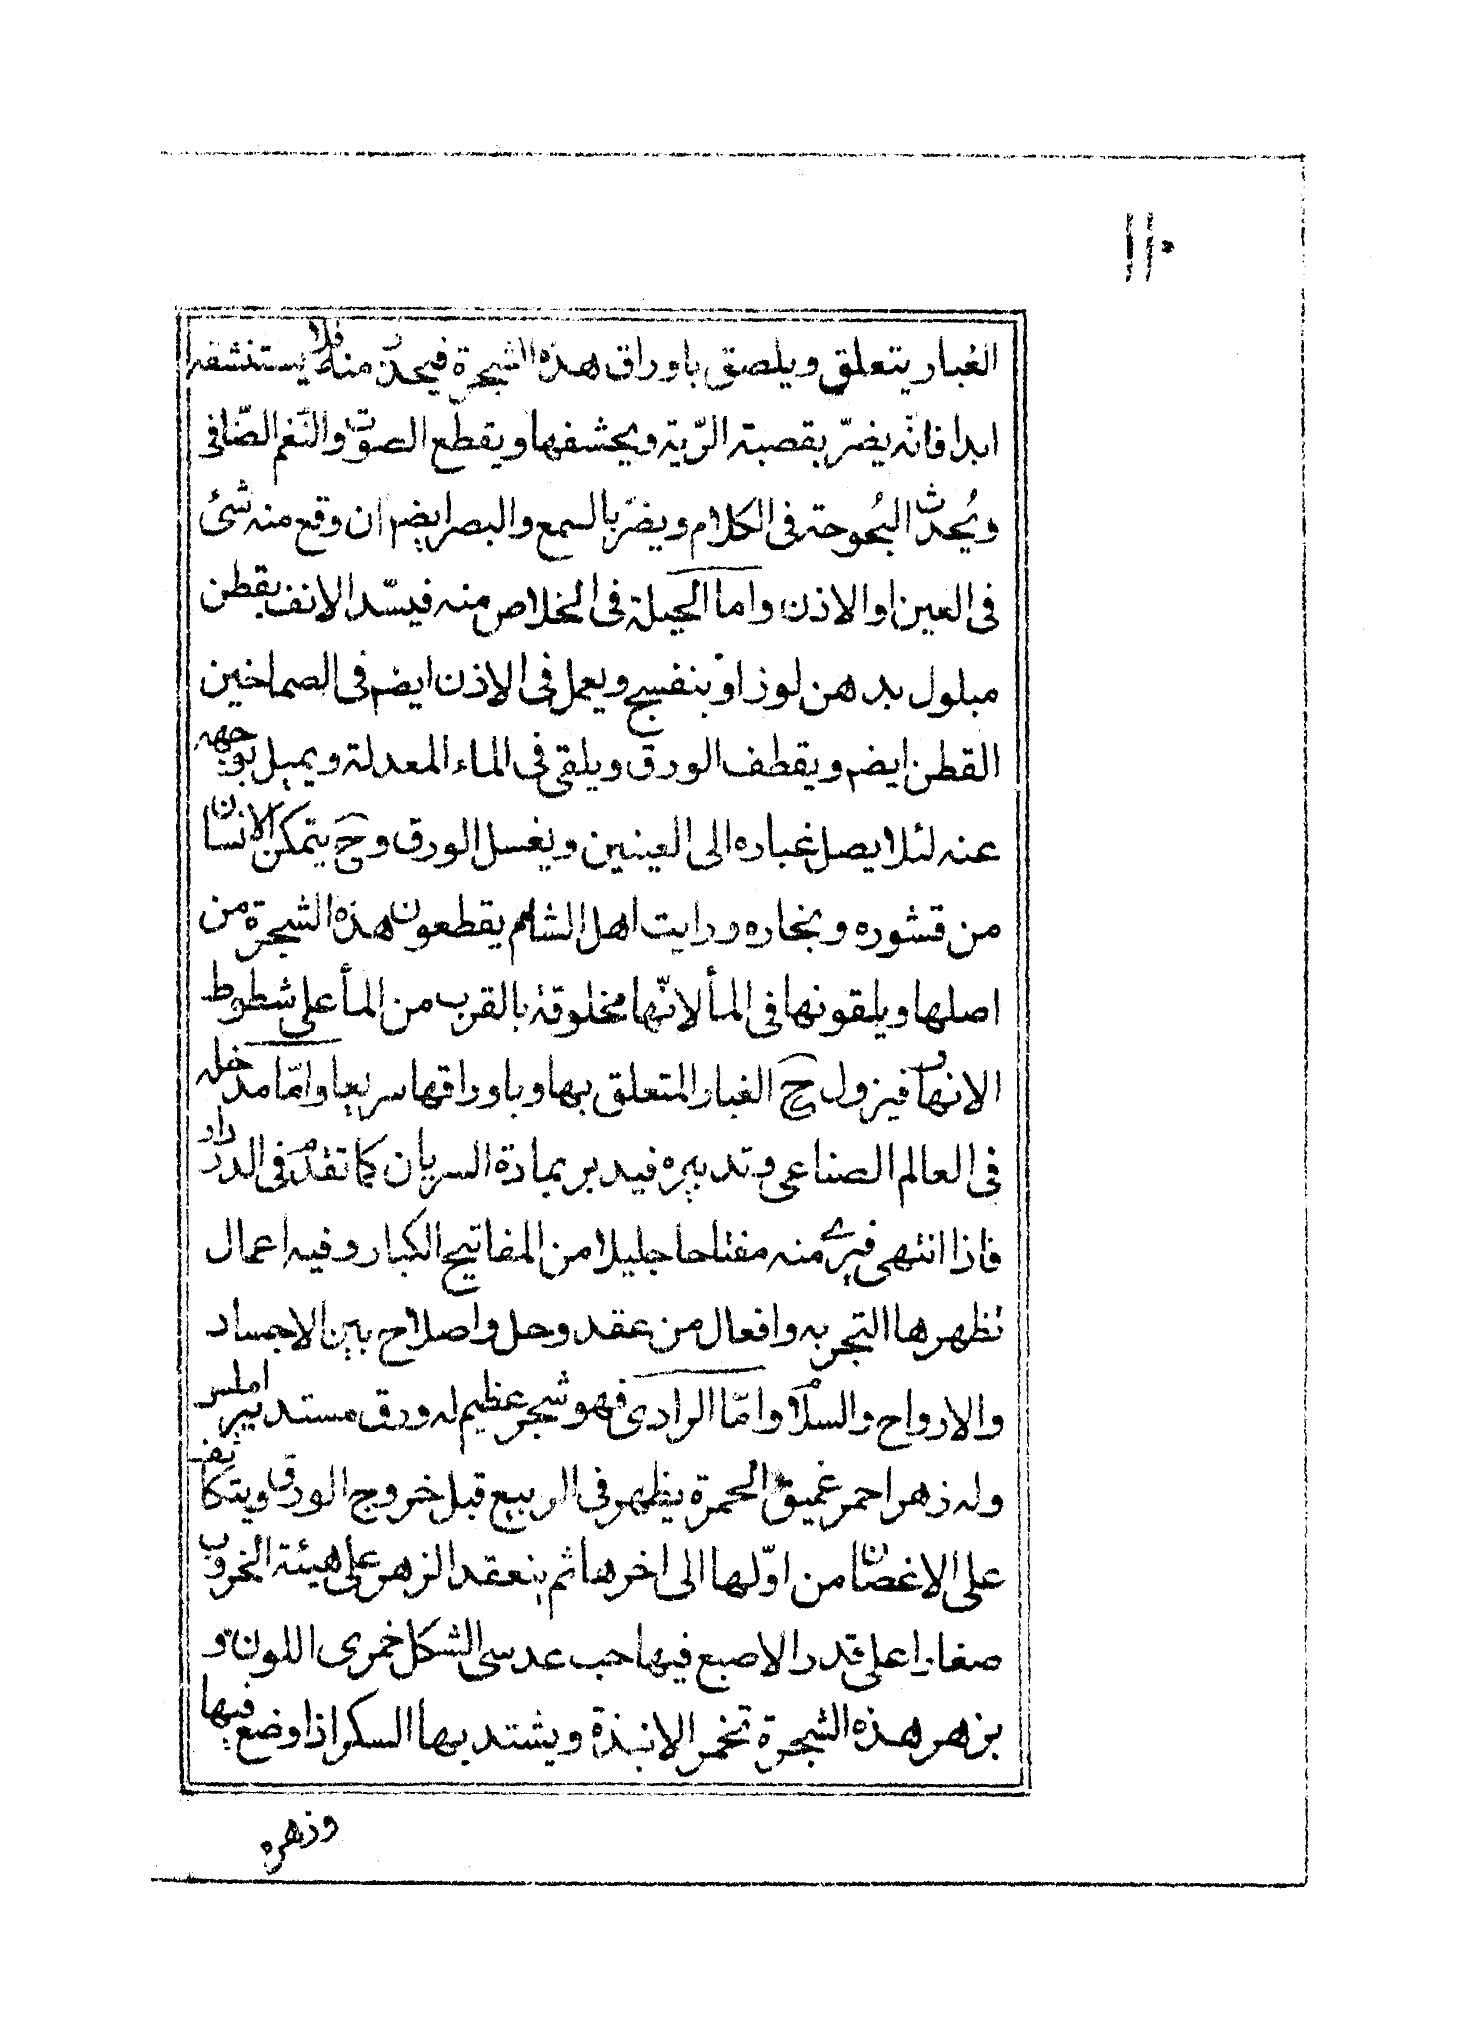 ١١٠
الغبار يتعلق ويلصق باوراق هذه الشجرة فيحذر منه فلا يستنشقه
ابدا فانّه يضرّ بقصبة الرّية ويحشفها ويقطع الصوت والنّغم الصّافى
ويُحدث البُحوحة فى الكلام ويضرّ بالسمع والبصر ايضم ان وقع منه شئ
فى العين او الاذن واما الحيلة فى الخلاص منه فيسّد الانف بقطن
مبلول بدهن لوز او بنفسج ويعمل فى الاذن ايضم فى الصماخين
القطن ايضم ويقطف الورق ويلقى فى الماء المعدلة ويميل بوجهه
عنه لئلا يصل غباره الى العينين ويغسل الورق وح يتمكن الانسان
من قشوره وبخاره ورايت اهل الشام يقطعون هذه الشجرة من
اصلها ويلقونها فى المأ لانّها مخلوقة بالقرب من المأ على شطوط
الانهار فيزول ح الغبار المتعلق بها وباوراقها سريعا وامّا مدخله
فى العالم الصناعى وتدبيره فيدبر بمادة السريان كما تقدم فى الدردار
فاذا انتهى فيرى منه مفتاحا جليلا من المفاتيح الكبار وفيه اعمال
تظهرها التجربه وافعال من عقد وحل واصلاح بين الاجساد
والارواح والسلام وامّا الرادى فهو شجر عظيم له ورق مستدير املس
وله زهر احمر غميق الحمرة يظهر فى الربيع قبل خروج الورق ويتكاثف
على الاغصان من اوّلها الى اخرها ثم ينعقد الزهر على هيئة الخروب
صغارا على قدر الاصبع فيها حب عدسى الشكل خمرى اللون و
بزهر هذه الشجرة تخمر الانبذة ويشتد بها السكر اذا وضع فيها
وزهره